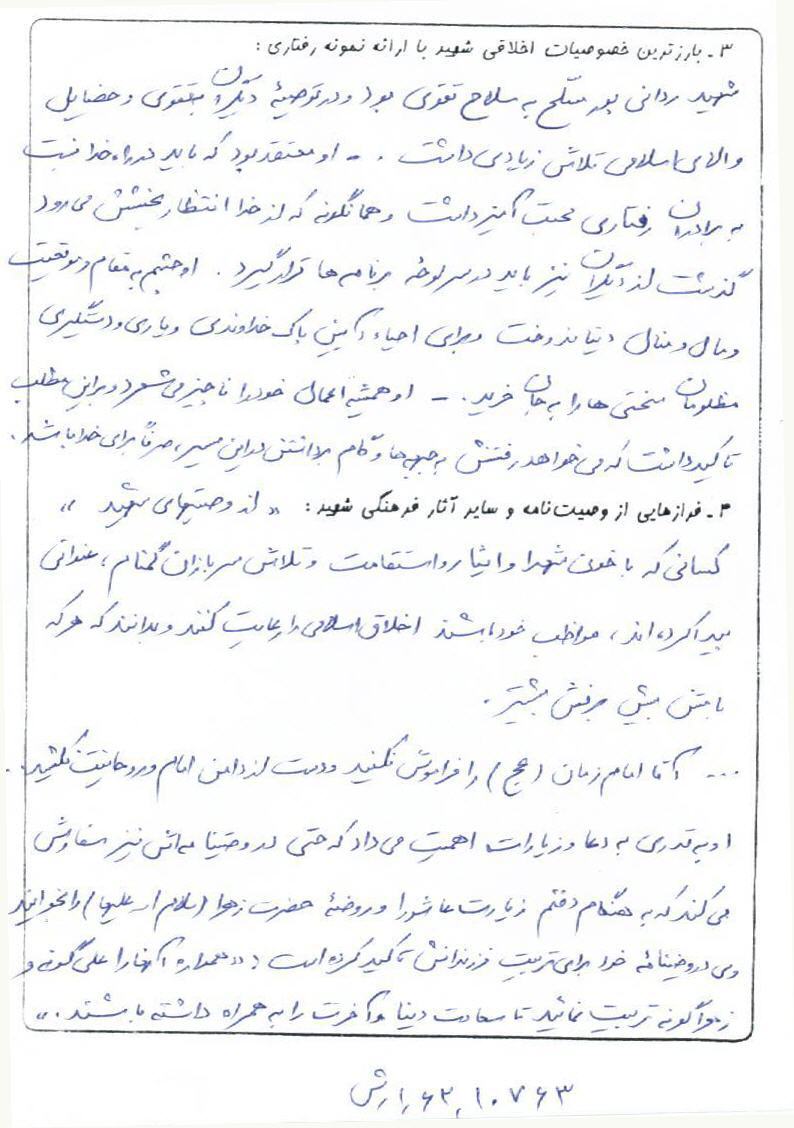 ۳ـ بارزترین خصوصیات اخلاقی شهید با ارائه نمونه رفتاری :
شهید ردانی پور مسلح به سلاح تقوی بود و در توصیهٔ دیگران بتقوی و خصایل
والای اسلامی تلاش زیادی داشت . ـ او معتقد بود که باید در راه خدا نسبت
به برادران رفتاری محبت آمیز داشت و همانگونه که از خدا انتظار بخشش می رود
گذشت از دیگران نیز باید در سرلوحهٔ برنامه ها قرار گیرد . او چشم به مقام و موقعیت
و مال و منال دنیا ندوخت و برای احیاء آئین پاک خداوندی و یاری و دستگیری
مظلومان سختی ها را به جان خرید . ـ او همیشه اعمال خود را ناچیز می شمرد و بر این مطلب
تاکید داشت که می خواهد رفتنش به جبهه ها و گام برداشتن در این مسیر، صرفاً برای خدا باشد .
۴ـ فرازهایی از وصیت نامه و سایر آثار فرهنگی شهید : « از وصیتهای شهید »
کسانی که با خون شهدا و ایثار و استقامت و تلاش سربازان گمنام ، عنوانی
پیدا کرده اند ، مواظب خود باشند اخلاق اسلامی را رعایت کنند و بدانند که هر که
بامش بیش برفش بیشتر .
... آقا امام زمان (عج) را فراموش نکنید و دست از دامن امام و روحانیت نکشید ...
او به قدری به دعا و زیارات اهمیت می داد که حتی در وصیتنامه اش نیز سفارش
می کند که به هنگام دفنم زیارت عاشورا و روضهٔ حضرت زهرا (سلام ا... علیها) را بخوانید
وی در وصیتنامهٔ خود برای تربیت فرزندانش تاکید کرده است : « همواره آنها را علی گونه و
زهرا گونه تربیت نمائید تا سعادت دنیا و آخرت را به همراه داشته باشند . »
۶۲,۱۰۷۶۳